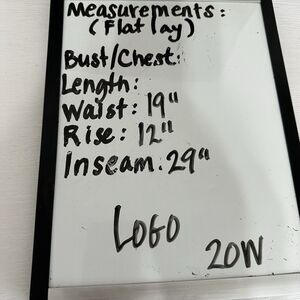 Measurements:
(Flat lay)
Bust/Chest:
Length:
Waist: 19"
Rise: 12"
Inseam. 29"
LOGO
20W